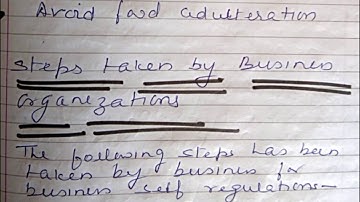 Avoid food adulteration
Steps taken by Business
organizations
The following steps has been
taken by business for
business self regulations-